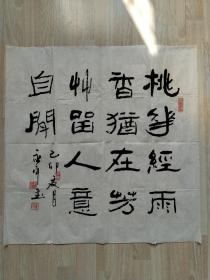 桃華經雨
香猶在芳
艸留人意
自閑
己卯夏月